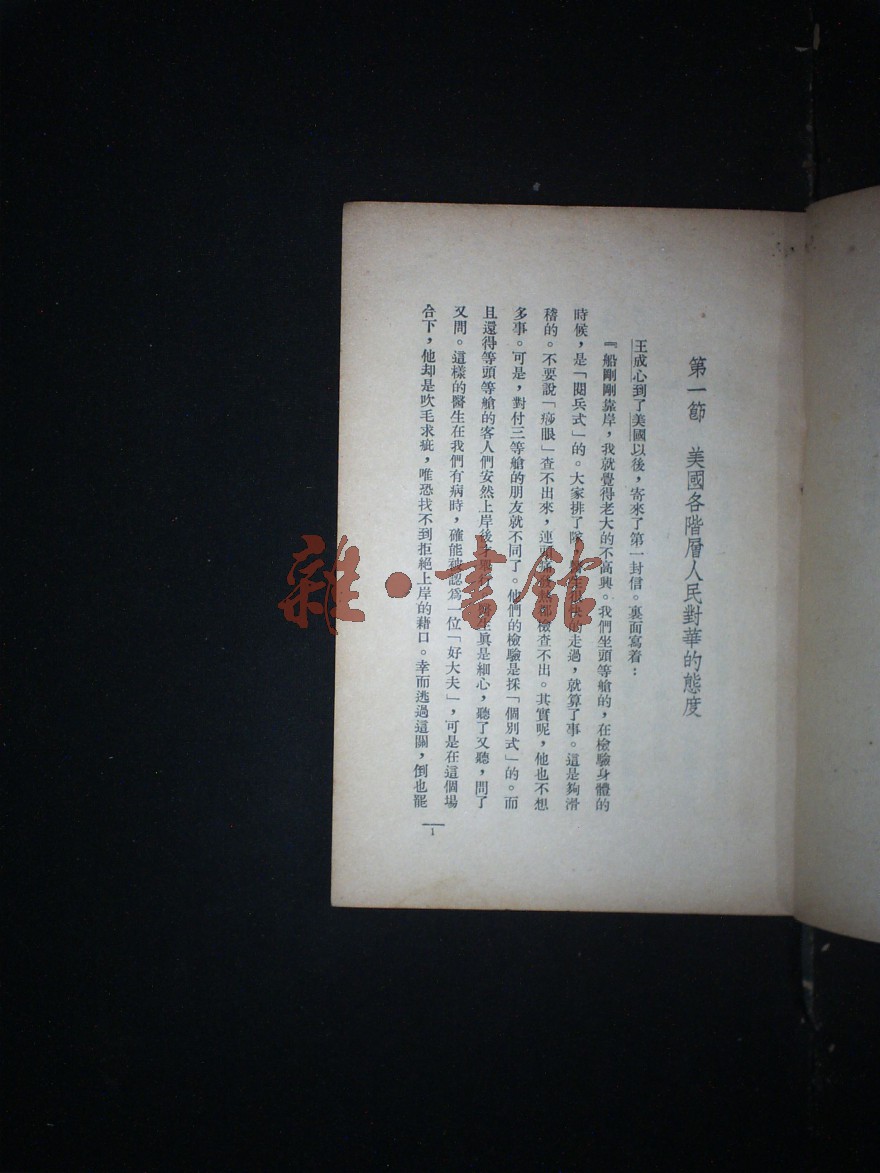 第一節　美國各階層人民對華的態度
王成心到了美國以後，寄來了第一封信。裏面寫着：
『船剛剛靠岸，我就覺得老大的不高興。我們坐頭等艙的，在檢驗身體的
時候，是「閱兵式」的。大家排了隊，醫生很快的走過，就算了事。這是夠滑
稽的。不要說「痧眼」查不出來，連頭痛 都檢查不出。其實呢，他也不想
多事。可是，對付三等艙的朋友就不同了。他們的檢驗是採「個別式」的。而
且還得等頭等艙的客人們安然上岸後才 醫生眞是細心，聽了又聽，問了
又問。這樣的醫生在我們有病時，確能被認爲一位「好大夫」，可是在這個場
合下，他却是吹毛求疵，唯恐找不到拒絕上岸的藉口。幸而逃過這關，倒也罷
1
雜·書館